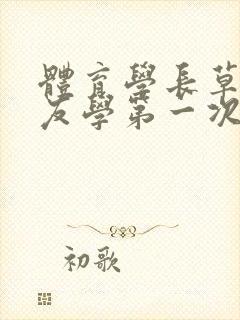 體育學長草
友學第一次
初歌